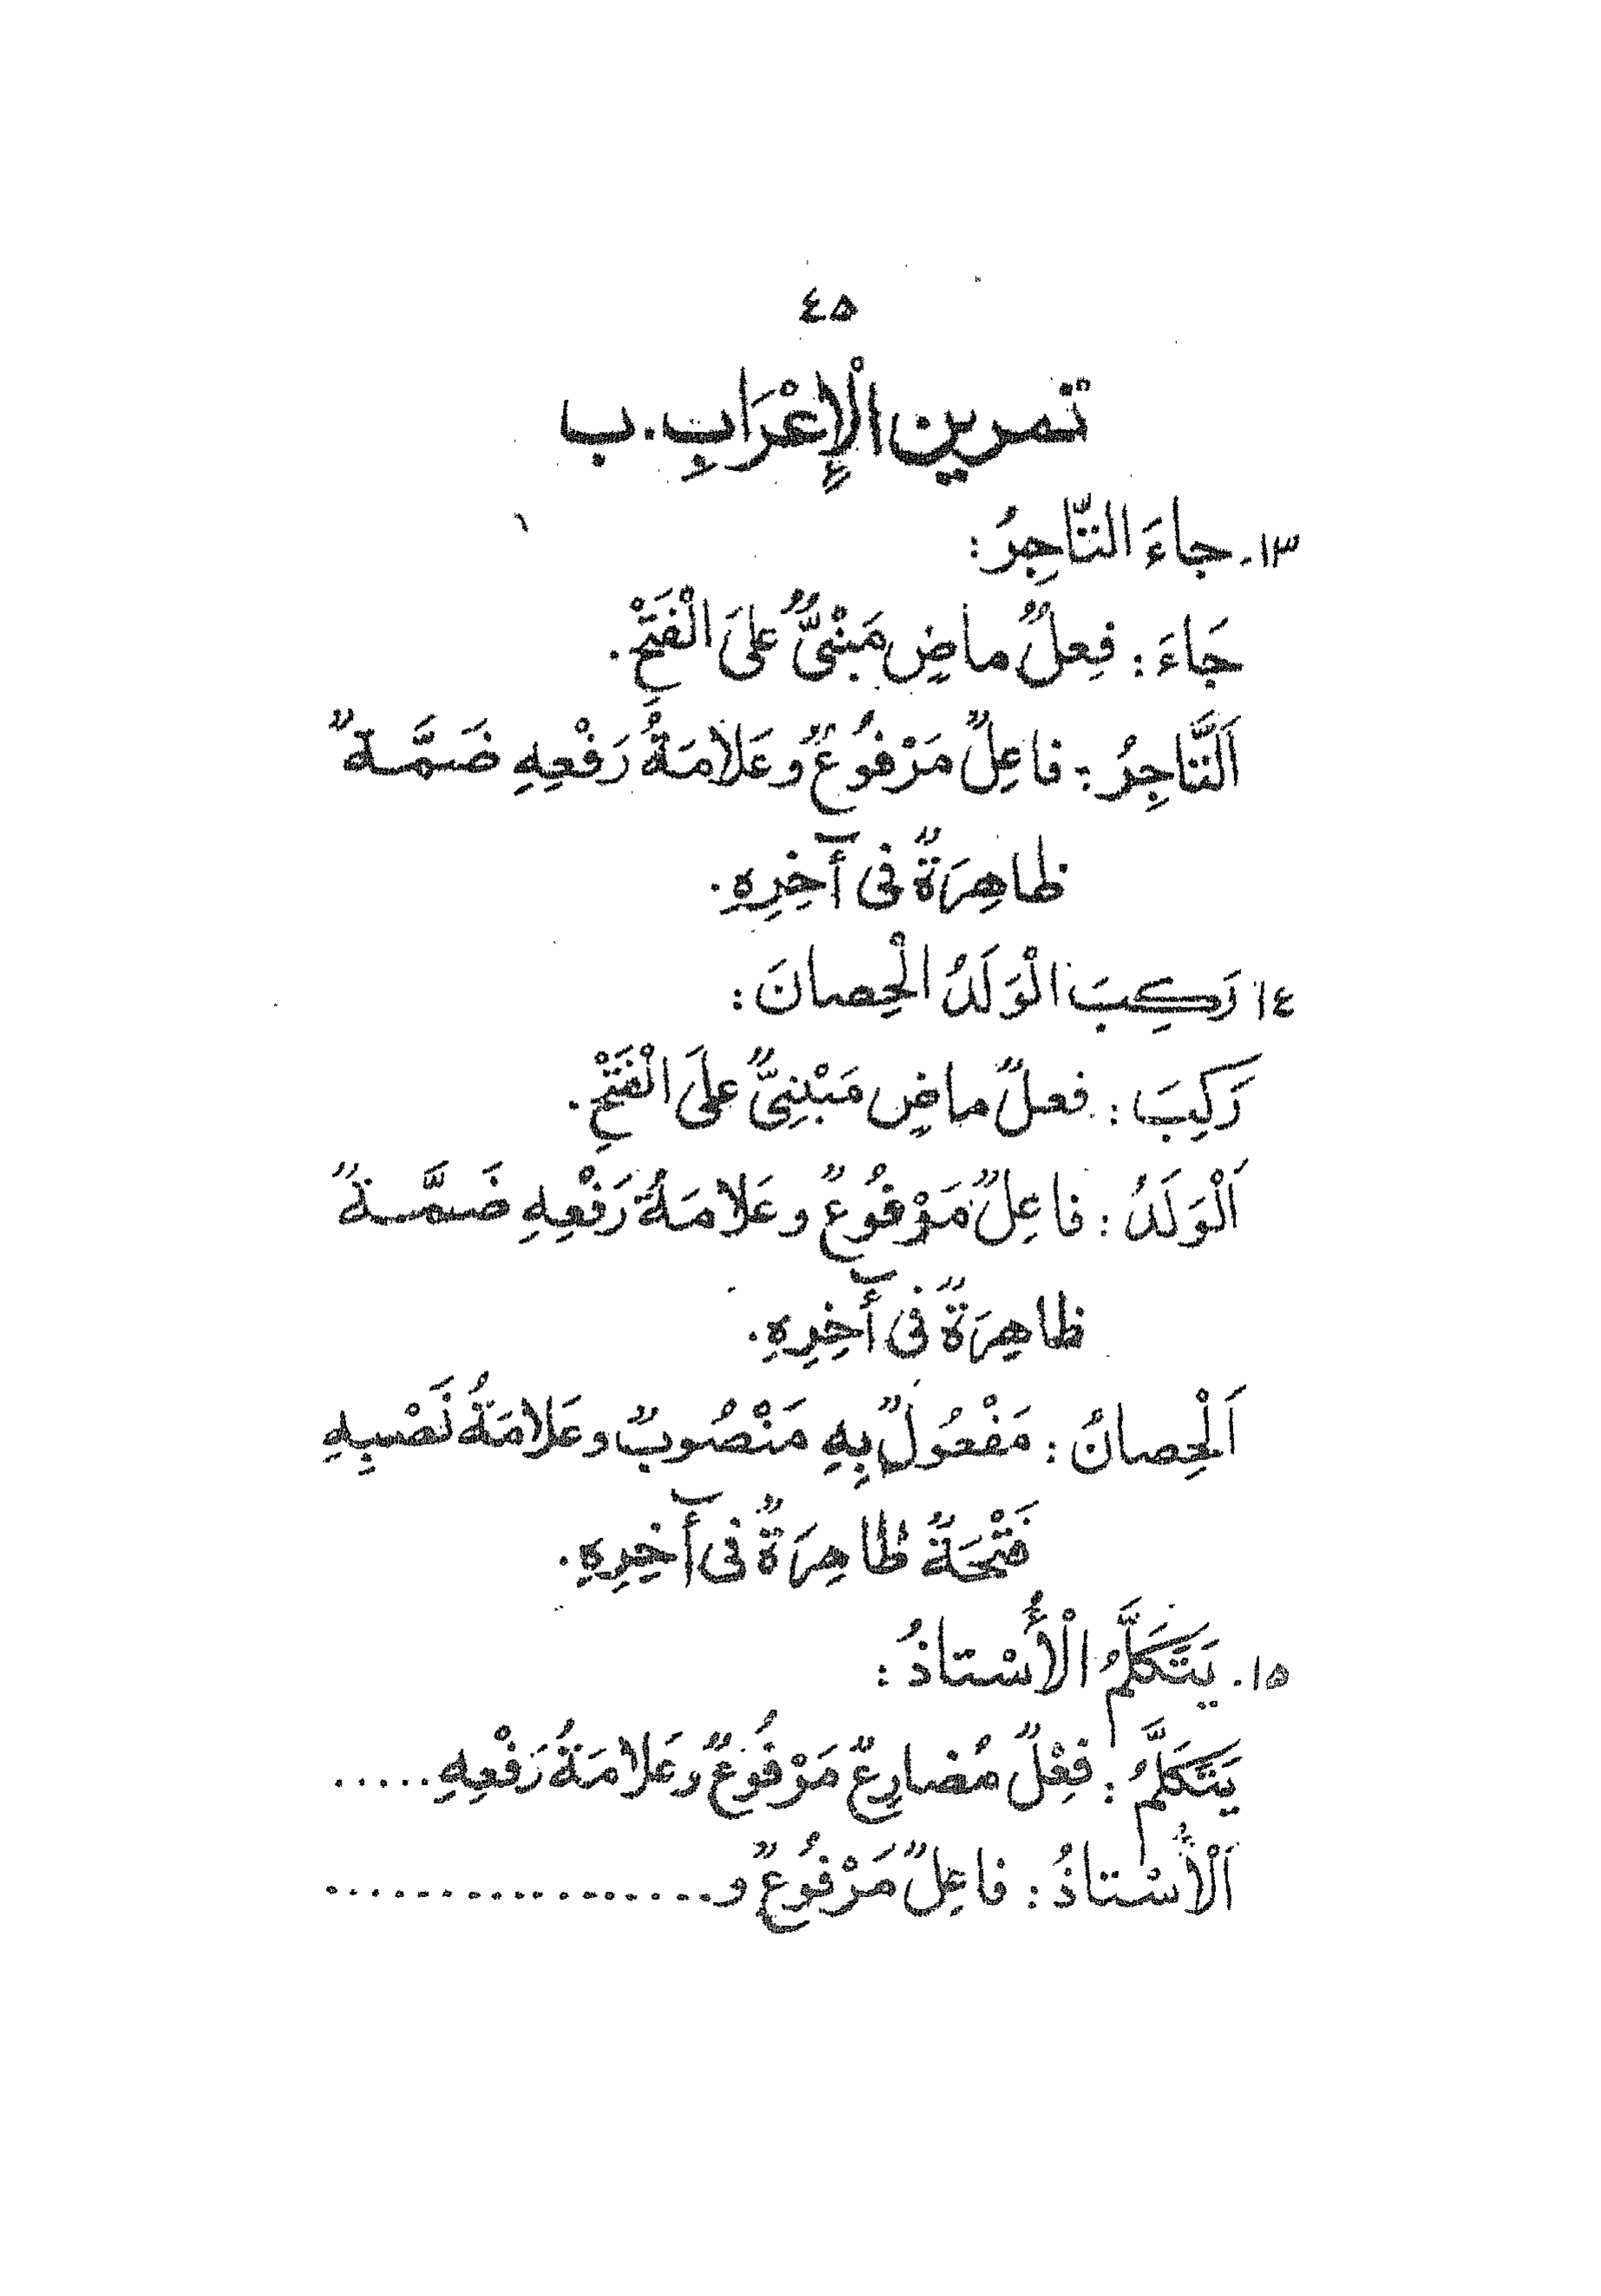 ٤٥
تمرين الْإِعْرَابِ. ب
١٣. جاءَ التّاجِرُ:
جَاءَ: فِعلٌ ماضٍ مَبْنىٌّ علىَ الْفَتَحْ.
اَلتَّاجِرُ: فاعِلٌ مَرْفُوُعٌ وعَلامَةُ رَفْعِهِ ضَمَّةٌ
ظاهِرَةٌ فى أَخِرِهِ.
١٤ رَكِبَ الْوَلَدُ الْحِصانَ:
رَكِبَ: فعلٌ ماضٍ مَبْنِىٌّ علىَ الْفَتَحْ.
اَلْوَلَدُ: فاعِلٌ مَرْفُوُعٌ وعَلامَةُ رَفْعِهِ ضَمَّةٌ
ظاهِرَةٌ فى أَخِرِهِ.
اَلْحِصانُ: مَفْعُولٌ بِهِ مَنْصُوبٌ وعَلامَةُ نَصْبِهِ
فَتْحَةٌ ظاهِرَةٌ فى أَخِرِهِ.
١٥. يَتَكَلَّمُ الْأُسْتاذُ:
يَتَكَلَّمُ: فِعْلٌ مُضارِعٌ مَرْفُوعٌ وعَلامَةُ رَفْعِهِ.....
اَلْأُسْتاذُ: فاعِلٌ مَرْفُوُعٌ و.................